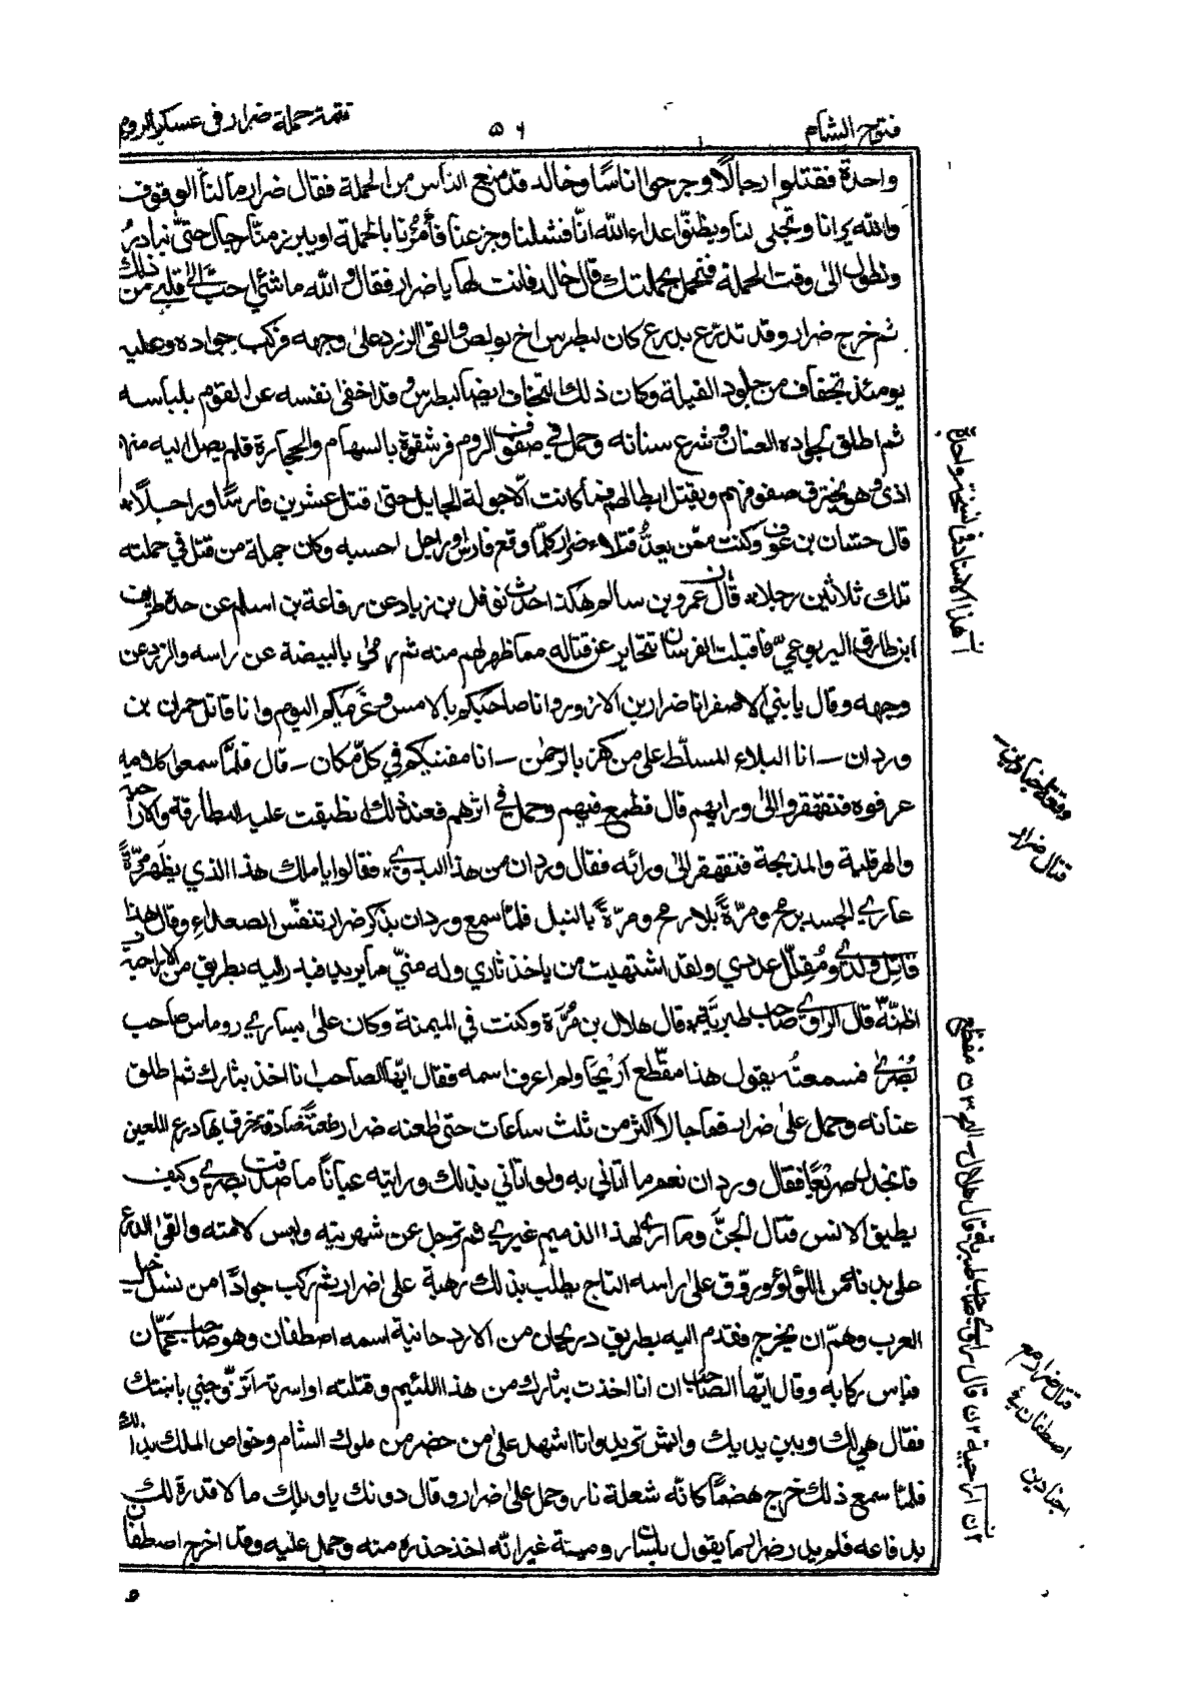 فتوح الشام
٥٦
تتمة حملة ضرار فى عسكر الروم
واحدة فقتلوا رجالًا وجرحوا اناسًا وخالد قد منع الناس من الحملة فقال ضرار ما لنا الوقوف
والله يرانا وتجلى لنا ويظنّوا اعداء الله انّا فشلنا وجزعنا فأمُرنا بالحملة او يبرز منّا رجال حتّى نبادرُ
ونطول الىٰ وقت الحملة فنحمل بحملتك قال خالد فانت لها يا ضرار فقال والله ما شئ احبّ الىٰ قلبي من ذلك
ثم خرج ضرار وقد تدرّع بدرع كان لبطرس اخ بولص والقى الزرد علىٰ وجهه وركب جواده وعليه
يومئذ تجفاف من جلود الفيلة وكان ذلك التجفاف ايضًا لبطرس وقد اخفىٰ نفسه عن القوم بلباسه
ثم اطلق لجواده العنان وشرع سنانه وحمل في صفوف الروم فرشقوه بالسهام والحجارة فلم يصل اليه منها
اذى وهو يخترق صفوفهم ويقتل ابطالهم فما كانت الّا جولة الجايل حتىٰ قتل عشرين فارسًا وراجلًا
قال حسّان بن عوف وكنت ممّن يعدُّ قتلاء ضرار كلّما وقع فارس او راجل احسبه وكان جملة من قتل في حملته
تلك ثلاثين رجلا قال عمرو بن سالم هكذا حدّث نوفل بن زياد عن رفاعة بن اسلم عن جده طريف
ابن طارق اليربوعيّ فاقبلت الفرسان تتحايد عن قتاله مما ظهر لهم منه ثم رمىٰ بالبيضة عن راسه والزرد عن
وجهه وقال يا بني الاصفر انا ضرار بن الازور وانا صاحبكم بالامس وغريمكم اليوم وانا قاتل حمران بن
وردان – انا البلاء المسلّط على من كفر بالرحمٰن – انا مفنيكم في كل مكان – قال فلمّا سمعوا كلامه
عرفوه فتقهقروا الىٰ ورايهم قال فطمع فيهم وحمل في اثرهم فعند ذلك نطبقت عليه البطارقة والاراحية
والهرقلية والمذبجة فتقهقر الىٰ ورائه فقال وردان من هذا البدويّ فقالوا يا ملك هذا الذي يظهر مرّةً
عاري الجسد برمح ومرّةً بلا رمح ومرّةً بالنبل فلمّا سمع وردان بذكر ضرار تنفّس الصعداء وقال هذا
قاتل ولدي ومُقِلّل عددي ولقد اشتهيت من ياخذ ثاري وله منيّ ما يريد فبادر اليه بطريق من الاراحية
اظنّهٗ قال الراوي صاحب طبريّة قال هلال بن مُرّة وكنت في الميمنة وكان علىٰ يساري روماس صاحب
بُصْرىٰ فسمعتُه يقول هذا مقّطع اَرْيحَا ولم اعرف اسمه فقال ايّها الصاحب انا اخذ بثارك ثم اطلق
عنانه وحمل علىٰ ضرار فما جالا اكثر من ثلث ساعات حتىٰ طعنه ضرار طعنةً صادقة يخرق بها درع اللعين
فانجدل صريعًا فقال وردان نعم ما اتاني به ولو اتاني بذلك ورايته عيانًا ما صدقت بصري وكيف
يطيق الانس قتال الجنّ وما ارىٰ لهذا الذميم غيري ثم ترجل عن شهريته ولبس لامته والقىٰ الدرع
على بدنه من اللؤلؤ وروّق علىٰ راسه التاج يطلب بذلك رهبة على ضرار ثم ركب جوادًا من نسل خيل
العرب وهمّ ان يخرج فقدم اليه بطريق در يجان من الارد حانية اسمه اصطفان وهو صاحب عمّان
فباس ركابه وقال ايّها الصّاحب ان انا اخذت بثارك من هذا اللئيم وقتلته او اسرته اتزوّجني بابنتك
فقال هي لك وبين يديك وانش تريد وانا اشهد على من حضر من ملوك الشام وخواص الملك بذلك
فلمّا سمع ذلك خرج هضمًا كانّه شعلة نار وحمل علىٰ ضرار وقال دونك يا ويلك ما لا قدرة لك
بدفاعه فلم يدر ضرار ما يقول بلسان رومية غير انّه اخذ حذره منه وحمل عليه وقد اخرج اصطفان
هذا الاسناد فى نسخة واحدة
وقعة اجنادين
قتال ضرار
قتال ضرار مع
اصطفان في
اجنادين